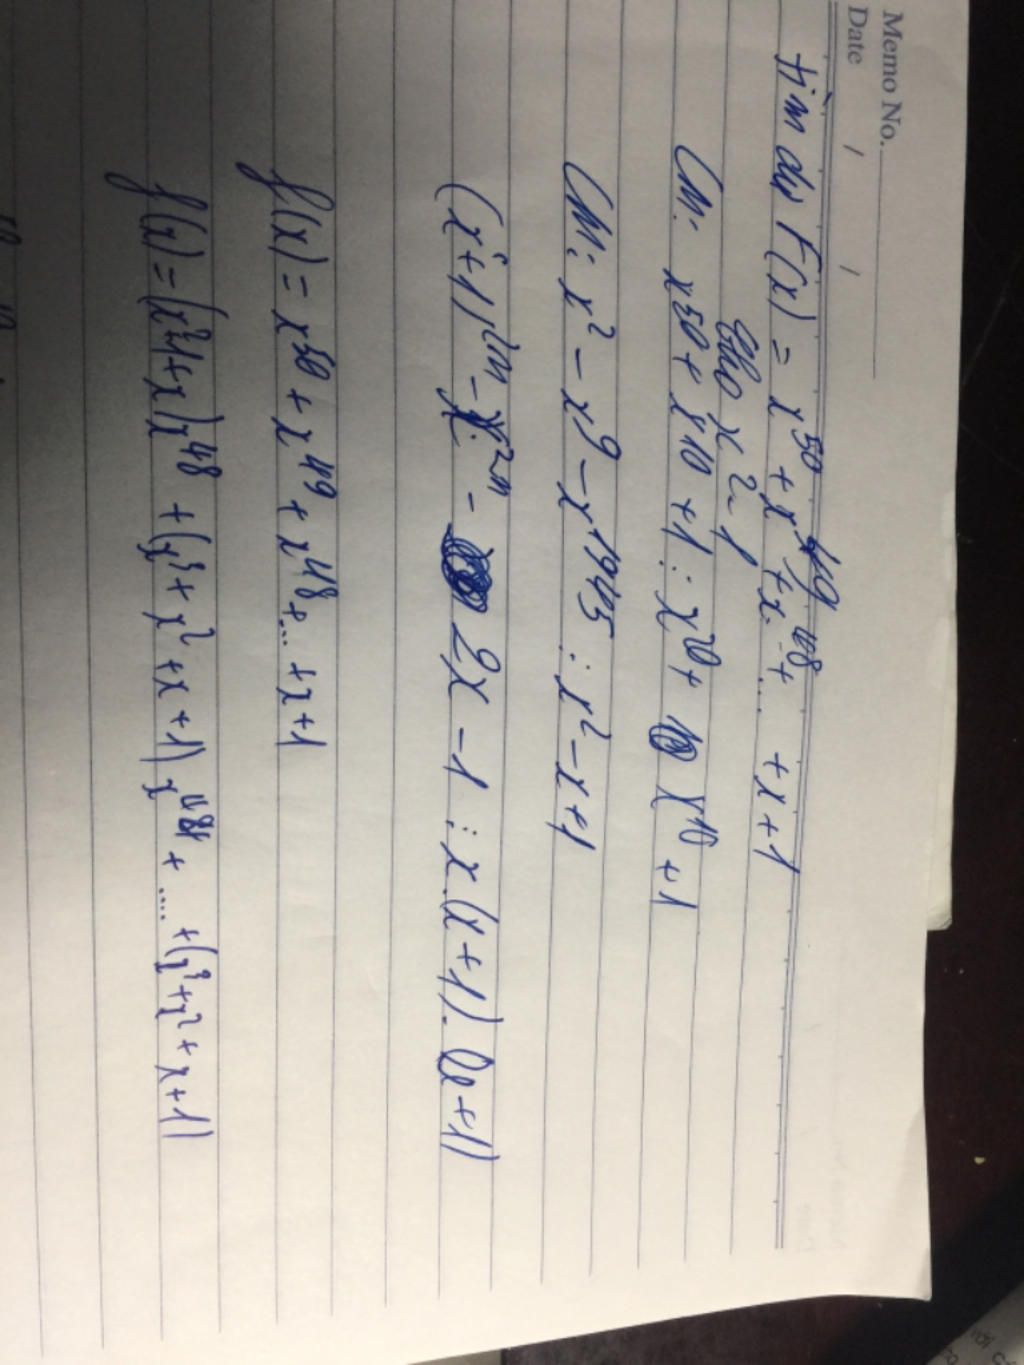 Memo No.
Date / /
tìm dư F(x) = x^50 + x^49 + x^48 + ... + x + 1
Cho x^2 - 1
CM: x^50 + x^10 + 1 ⋮ x^20 + x^10 + 1
CM: x^2 - x^9 - x^1945 ⋮ x^2 - x + 1
(x+1)^2n - x^2n - 2x - 1 ⋮ x.(x+1).(2x+1)
f(x) = x^50 + x^49 + x^48 + ... + x + 1
f(x) = (x^2+1+x)x^48 + (x^3 + x^2 + x + 1) x^48 + .... + (x^3 + x^2 + x + 1)